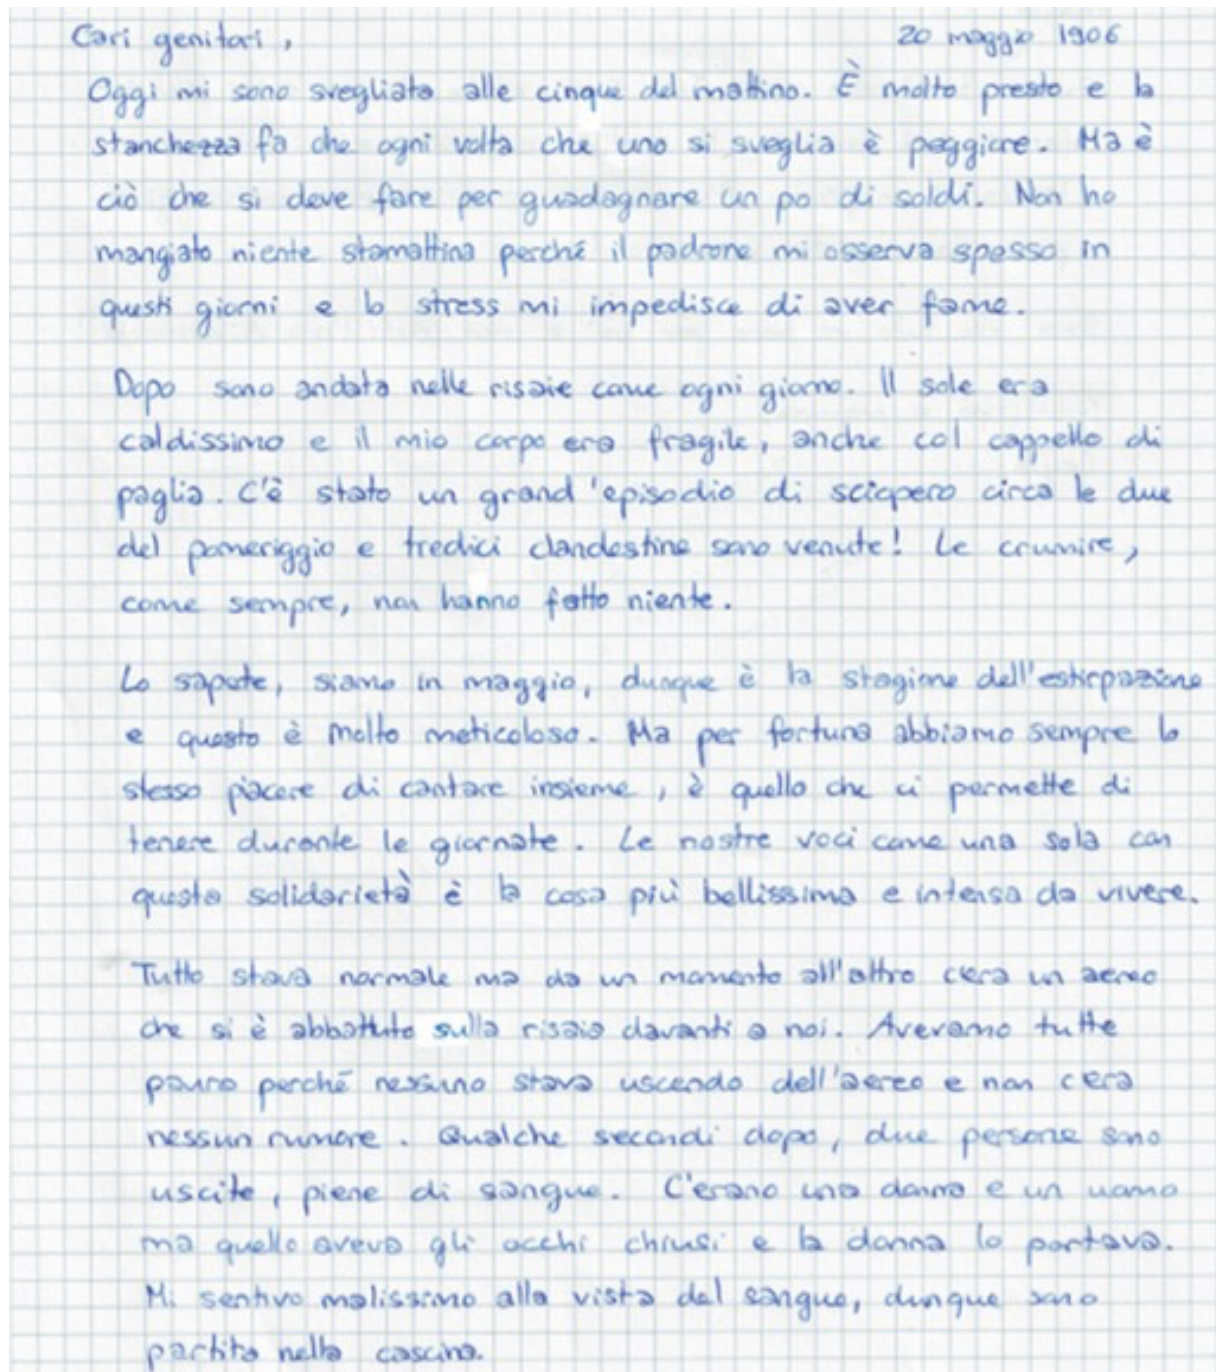 Cari genitori, 20 maggio 1906
Oggi mi sono svegliata alle cinque del mattino. È molto presto e la
stanchezza fa che ogni volta che uno si sveglia è peggiore. Ma è
ciò che si deve fare per guadagnare un po di soldi. Non ho
mangiato niente stamattina perché il padrone mi osserva spesso in
questi giorni e lo stress mi impedisce di aver fame.
Dopo sono andata nelle risaie come ogni giorno. Il sole era
caldissimo e il mio corpo era fragile, anche col cappello di
paglia. C'è stato un grand'episodio di sciopero circa le due
del pomeriggio e tredici clandestine sono venute! Le crumire,
come sempre, non hanno fatto niente.
Lo sapete, siamo in maggio, dunque è la stagione dell'estirpazione
e questo è molto meticoloso. Ma per fortuna abbiamo sempre lo
stesso piacere di cantare insieme, è quello che ci permette di
tenere durante le giornate. Le nostre voci come una sola con
questa solidarietà è la cosa più bellissima e intensa da vivere.
Tutto stava normale ma da un momento all'altro c'era un aereo
che si è abbattuto sulla risaia davanti a noi. Avevamo tutte
paura perché nessuno stava uscendo dell'aereo e non c'era
nessun rumore. Qualche secondi dopo, due persone sono
uscite, piene di sangue. C'erano una donna e un uomo
ma quello aveva gli occhi chiusi e la donna lo portava.
Mi sentivo malissimo alla vista del sangue, dunque sono
partita nella cascina.